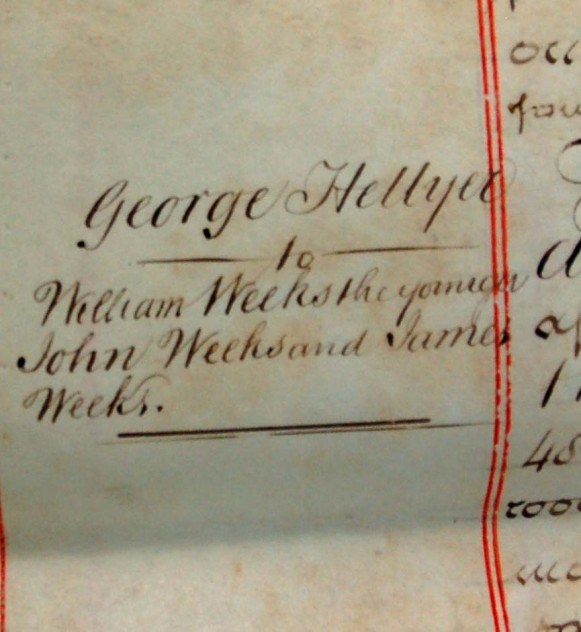 George Hellyer
to
William Weeks the younger
John Weeks and James
Weeks.
48